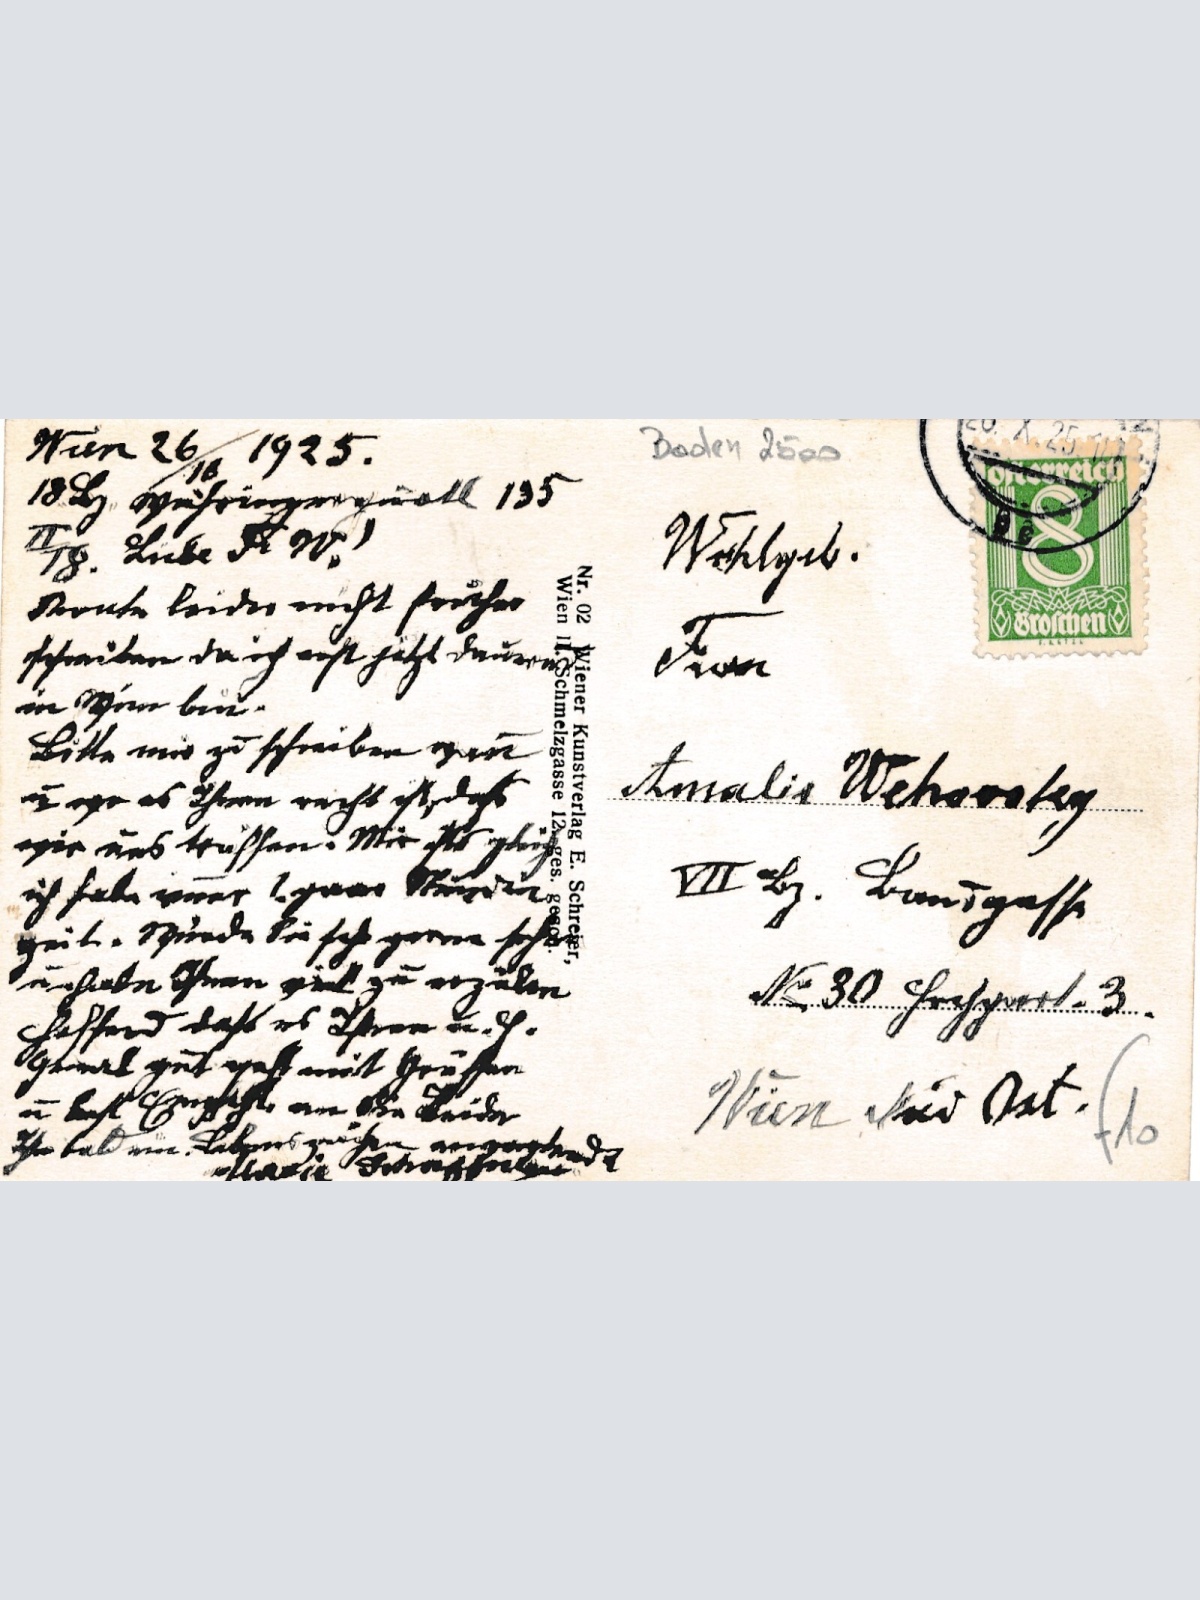 Wien 26/10 1925.
18 Bz Währingergürtl 135
II/18. Liebe Fr W!
Konte leider nicht früher
schreiben da ich erst jetzt dauernd
in Wien bin.
Bitte mir zu schreiben wan̄
u wo es Ihnen recht ist, daß
wir uns träffen. Mir ists gleich
ich habe immer paar Stunden
Zeit. Würde Sie sehr gerne sehn
u habe Ihnen viel zu erzälen
Hoffend daß es Ihnen u. H.
Gemal gut geht mit Grüßen
u best Empfhl. an Sie Beide
Ihr bald ein. Lebenszeichen erwartend
Marie
Nr. 02 Wiener Kunstverlag E. Schreier,
Wien II. Schmelzgasse 12 ges. gesch.
Boden 2500
20. X. 25
Österreich
8
Groschen
Wohlgeb.
Frau
Amalie
VII Bz. Bandgasse
No 30 Hochpart. 3.
Wien Ost.
10